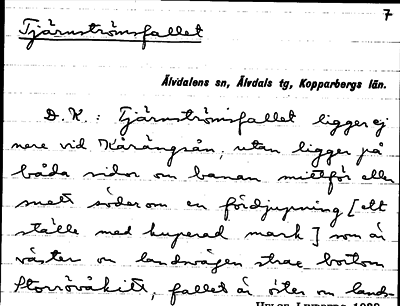 7
Tjärnströmsfallet
Älvdalens sn, Älvdals tg, Kopparbergs län.
D. K. : Tjärnströmsfallet ligger ej
nere vid Kåråängsån, utan ligger på
båda sidor om banan mittför eller
snett söder om en fördjupning [ett
ställe med kuperad mark] som är
väster om landsvägen strax bortom
Storrövåkilt, fallet är öster om lands-